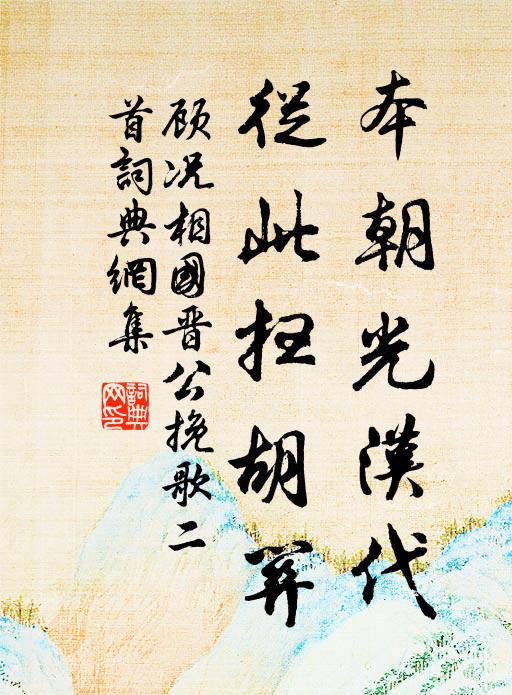 本朝光漢代
從此扫胡塵
顾况相國晋公挽歌二
首詞典網集
詞典网印